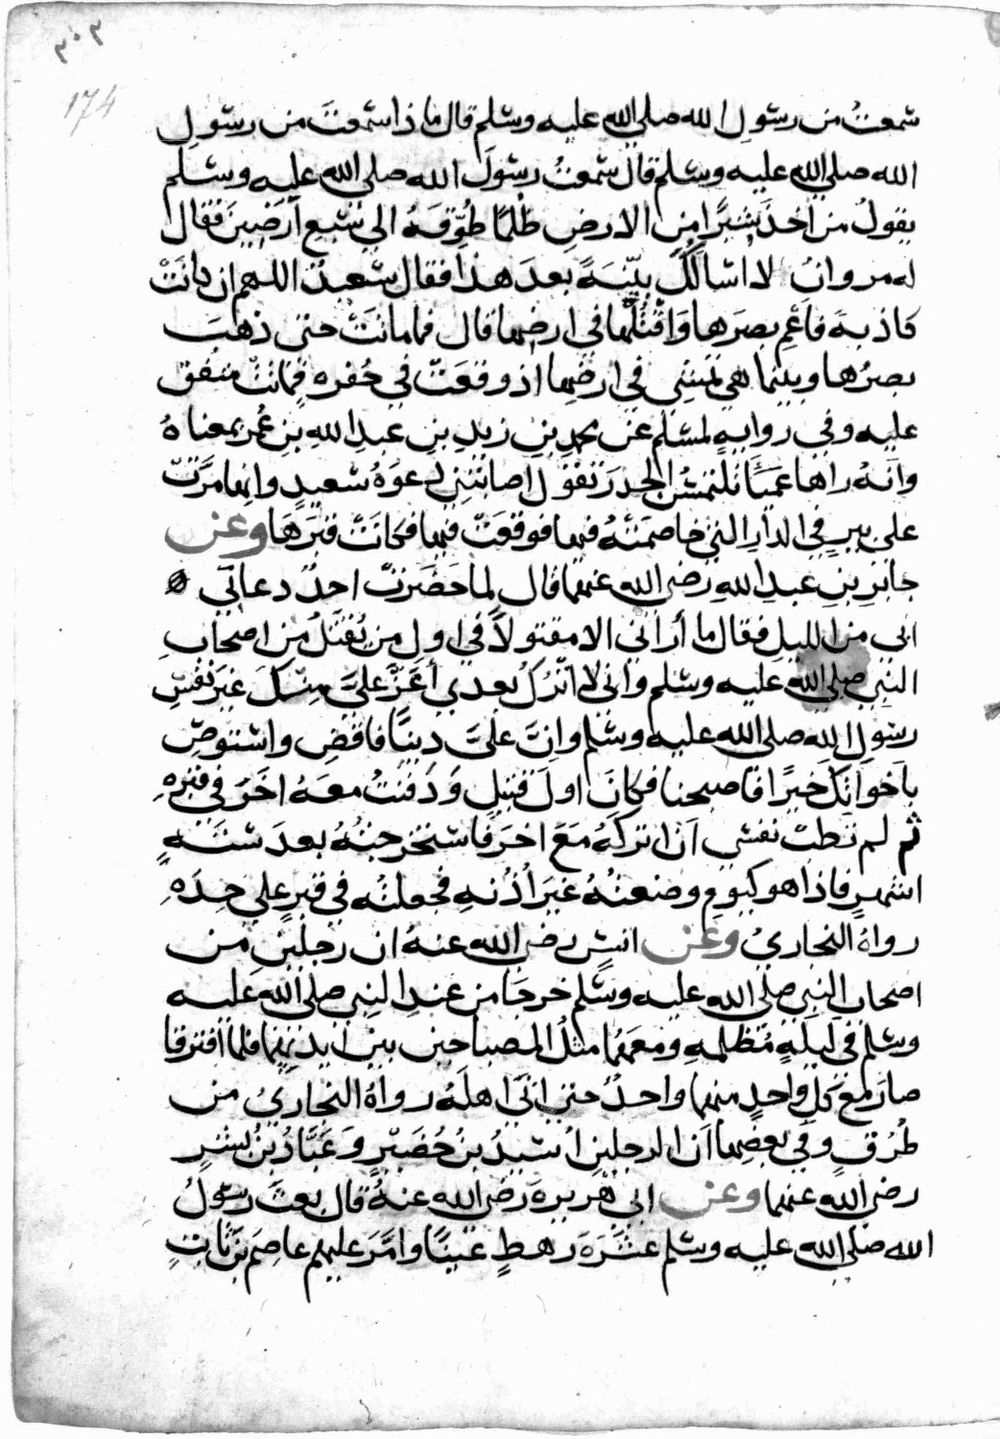 ٣٠٢
174
سمعتُ من رسول الله صلى الله عليه وسلم قال ماذا سمعتَ من رسول
الله صلى الله عليه وسلم قال سمعتُ رسولَ الله صلى الله عليه وسلم
يقولُ من اخذ شبرًا من الارضِ ظلمًا طُوِّقَهُ الى سَبْعِ أرَضِينَ فقال
له مروانُ لا اسألُكَ بيّنةً بعدَ هذا فقال سعيدٌ اللهم ان كانَتْ
كاذبةً فاعْمِ بصرَها وَاقْتُلْها في ارضها قال فما ماتَتْ حتى ذهبَ
بصرُها وبينما هي تمشي في ارضِها اذ وقعَتْ في حُفرةٍ فماتَتْ متفق
عليه وفي روايةٍ لمسلم عن محمدِ بنِ زيدِ بنِ عبدِ اللهِ بنِ عُمر بمعناهُ
وانّهُ راها عمياءَ تلتمسُ الجدرَ تقول اصابتني دعوةُ سعيدٍ وانها مرَّتْ
على بيرٍ في الدارِ التي خاصمَتْهُ فيها فوقعَتْ فيها فكانَتْ قبرَها وعن
جابرِ بنِ عبدِ اللهِ رضي الله عنهما قال لما حَضَرتْ احدٌ دعاني
ابي من الليل فقال ما أُراني الا مقتولاً في اول من يُقتلُ من اصحابِ
النبي صلى الله عليه وسلم واني لا اتركُ بعدي أعَزَّ عليَّ مِنْكَ غيرَ نفسِ
رسول الله صلى الله عليه وسلم وانَّ عليَّ دينًا فاقضِ واستوصِ
باخواتِكَ خيرًا فاصبحنا فكانَ اولَ قتيلٍ وَدَفنتُ معهُ اخَرَ في قبرهِ
ثم لم تطبْ نفسي اَن اتركَهُ مَعَ اخرَ فاستخرجتُهُ بعدَ ستةِ
اشهرٍ فاذا هو كيومِ وضعتُهُ غيرَ أُذُنهِ فجعلتُه في قبرٍ على حِدَةٍ
رواهُ البخاريُ وعن انسٍ رضي الله عنهُ ان رجلينِ من
اصحاب النبي صلى الله عليه وسلم خرجَا من عندِ النبي صلى الله عليه
وسلم في ليلةٍ مُظلمةٍ ومعهُما مثلُ المصباحينِ بينَ ايديهِما فلما افترقا
صارَ مع كلِ واحدٍ منهما واحدٌ حتى اتَى اهلَهُ رواهُ البخاريُ من
طُرُقٍ وفي بعضِها اَن الرجلينِ اُسَيدُ بنُ حُضَيرٍ وَعَبَّادُ بنُ بِشرٍ
رضي الله عنهما وعن ابي هريرةَ رضي الله عنهُ قال بعثَ رسولُ
الله صلى الله عليه وسلم عشرَةَ رهطٍ عينًا وامَّرَ عليهم عاصمَ بنَ ثابتٍ